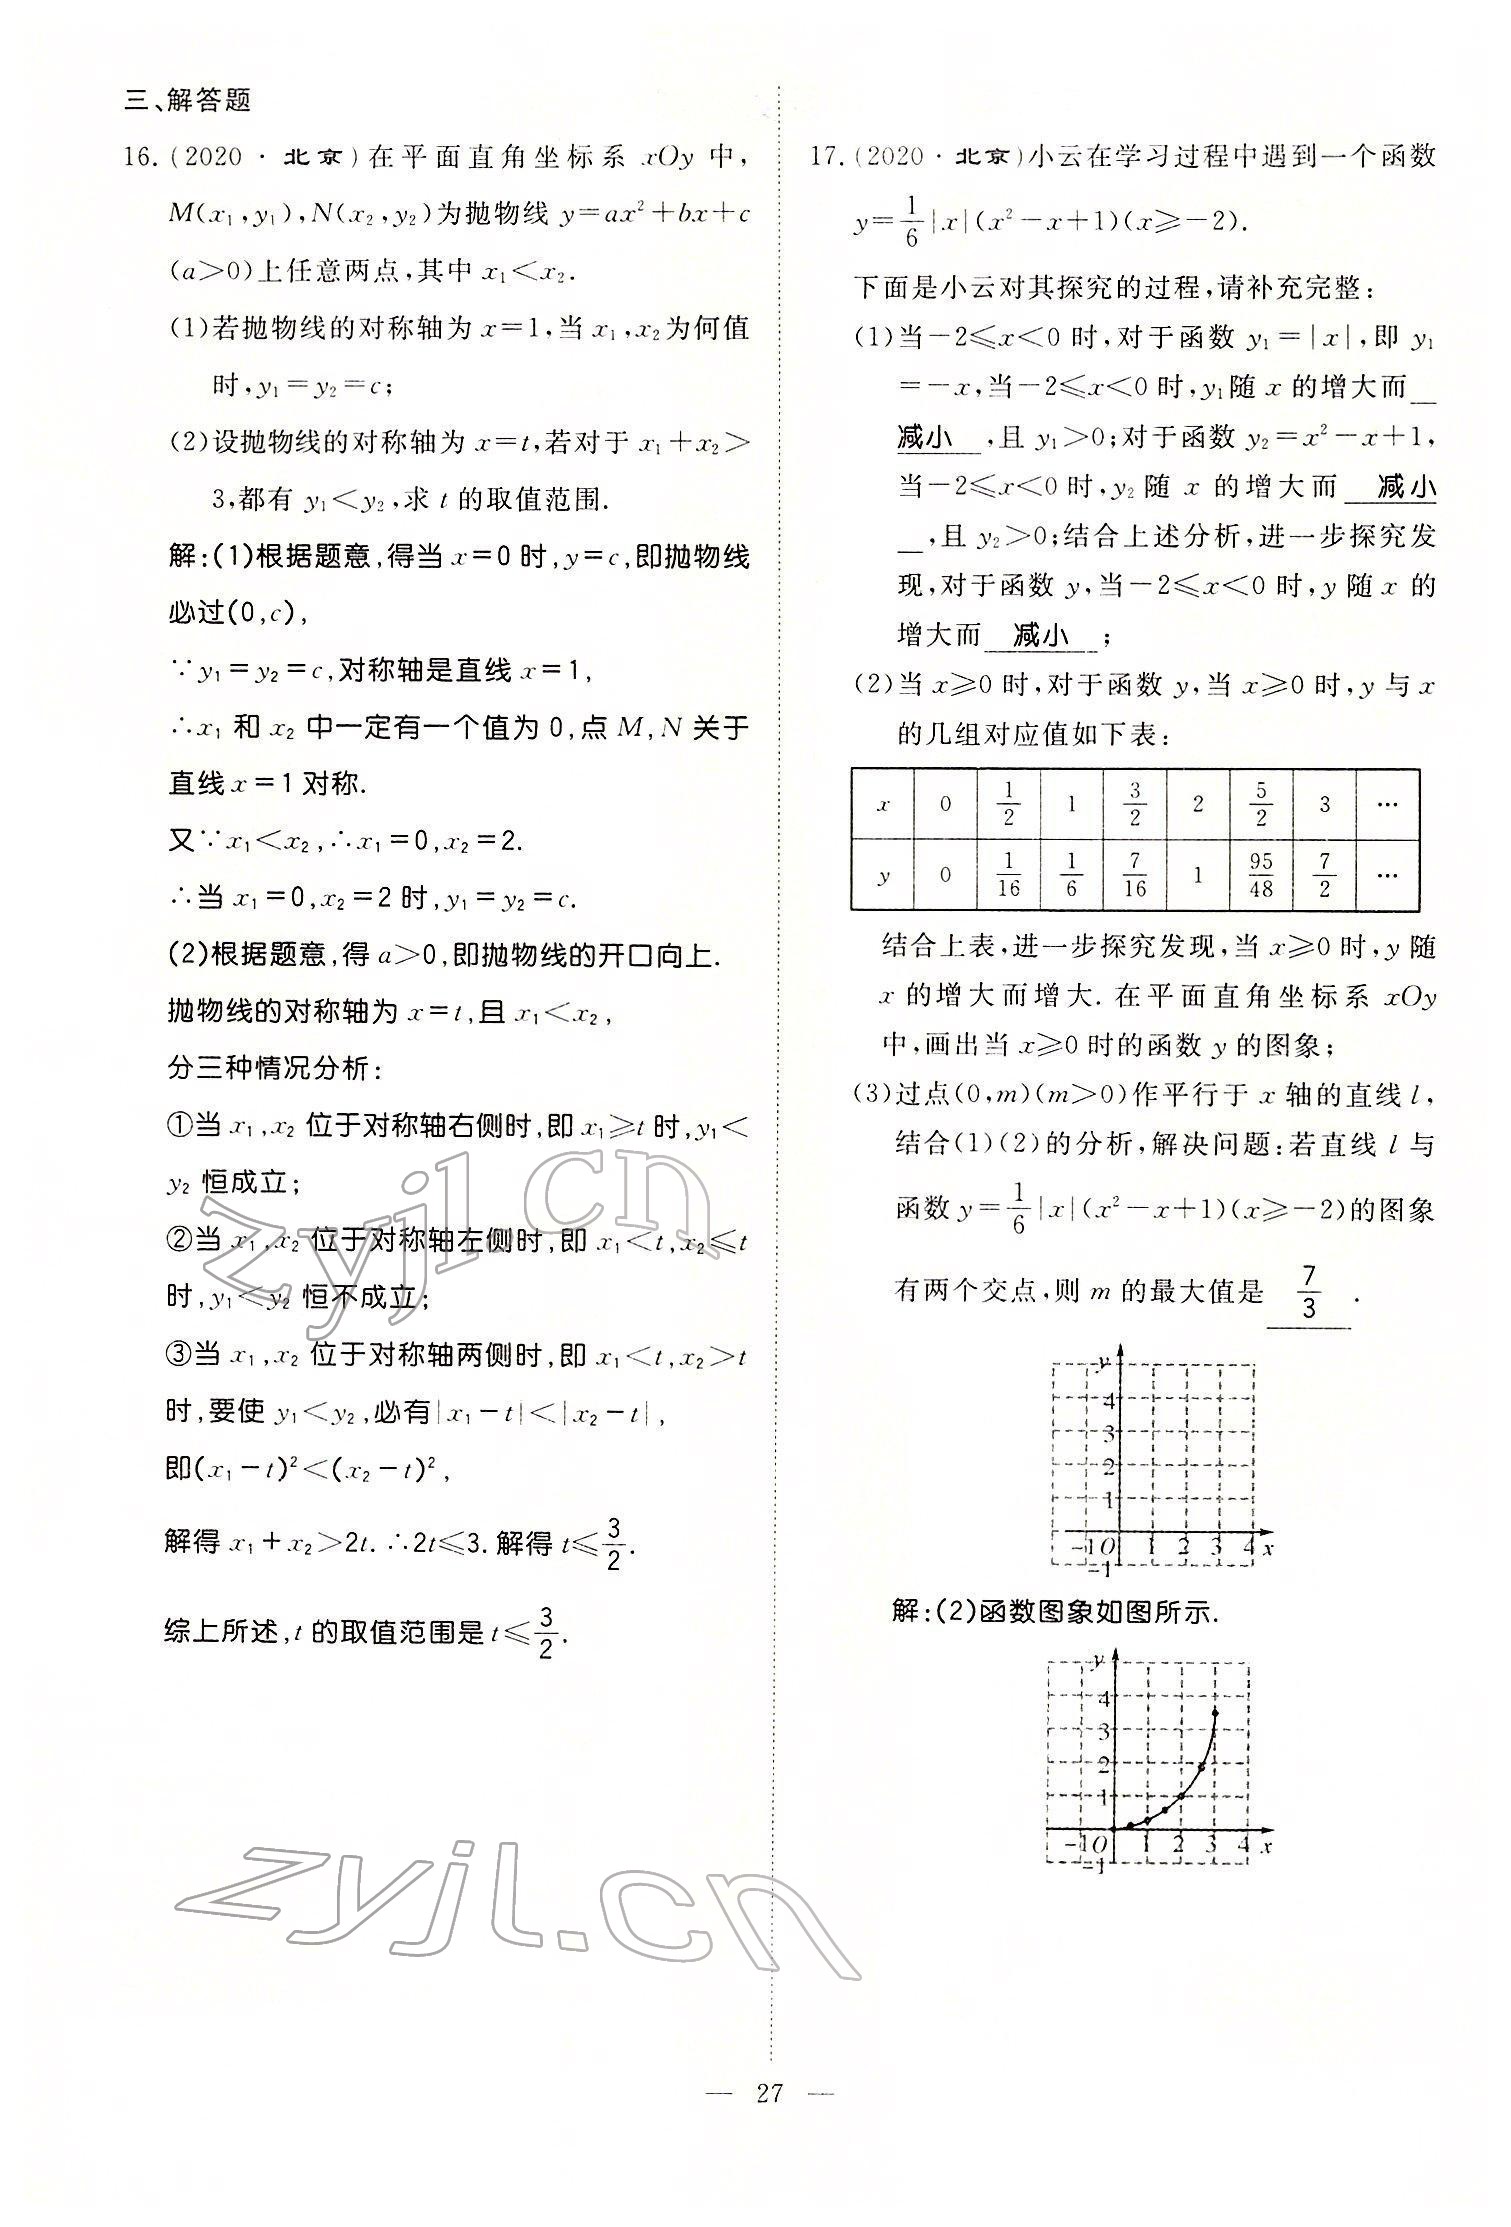 三、解答题
16.(2020·北京)在平面直角坐标系 xOy 中,
M(x₁,y₁),N(x₂,y₂)为抛物线 y=ax²+bx+c
(a>0)上任意两点,其中 x₁<x₂.
(1)若抛物线的对称轴为 x=1,当 x₁,x₂为何值
时,y₁=y₂=c;
(2)设抛物线的对称轴为 x=t,若对于 x₁+x₂>
3,都有 y₁<y₂,求 t 的取值范围.
解:(1)根据题意,得当 x=0 时,y=c,即抛物线
必过(0,c),
∵y₁=y₂=c,对称轴是直线 x=1,
∴x₁ 和 x₂ 中一定有一个值为 0,点 M,N 关于
直线 x=1 对称.
又∵x₁<x₂,∴x₁=0,x₂=2.
∴当 x₁=0,x₂=2 时,y₁=y₂=c.
(2)根据题意,得 a>0,即抛物线的开口向上.
抛物线的对称轴为 x=t,且 x₁<x₂,
分三种情况分析:
①当 x₁,x₂ 位于对称轴右侧时,即 x₁≥t 时,y₁<
y₂ 恒成立;
②当 x₁,x₂ 位于对称轴左侧时,即 x₁<t,x₂≤t
时,y₁<y₂ 恒不成立;
③当 x₁,x₂ 位于对称轴两侧时,即 x₁<t,x₂>t
时,要使 y₁<y₂,必有|x₁-t|<|x₂-t|,
即(x₁-t)²<(x₂-t)²,
解得 x₁+x₂>2t.∴2t≤3.解得 t≤3/2.
综上所述,t 的取值范围是 t≤3/2.
17.(2020·北京)小云在学习过程中遇到一个函数
y=1/6|x|(x²-x+1)(x≥-2).
下面是小云对其探究的过程,请补充完整:
(1)当-2≤x<0 时,对于函数 y₁=|x|,即 y₁
=-x,当-2≤x<0 时,y₁随 x 的增大而
减小 ,且 y₁>0;对于函数 y₂=x²-x+1,
当-2≤x<0 时,y₂ 随 x 的增大而 减小
,且 y₂>0;结合上述分析,进一步探究发
现,对于函数 y,当-2≤x<0 时,y 随 x 的
增大而 减小 ;
(2)当 x≥0 时,对于函数 y,当 x≥0 时,y 与 x
的几组对应值如下表:
x 0 1/2 1 3/2 2 5/2 3 …
y 0 1/16 1/6 7/16 1 95/48 7/2 …
结合上表,进一步探究发现,当 x≥0 时,y 随
x 的增大而增大.在平面直角坐标系 xOy
中,画出当 x≥0 时的函数 y 的图象;
(3)过点(0,m)(m>0)作平行于 x 轴的直线 l,
结合(1)(2)的分析,解决问题:若直线 l 与
函数 y=1/6|x|(x²-x+1)(x≥-2)的图象
有两个交点,则 m 的最大值是 7/3 .
y
4
3
2
1
-1 O 1 2 3 4 x
-1
解:(2)函数图象如图所示.
y
4
3
2
1
-1 O 1 2 3 4 x
-1
zyjl.cn
zyjl.cn
— 27 —